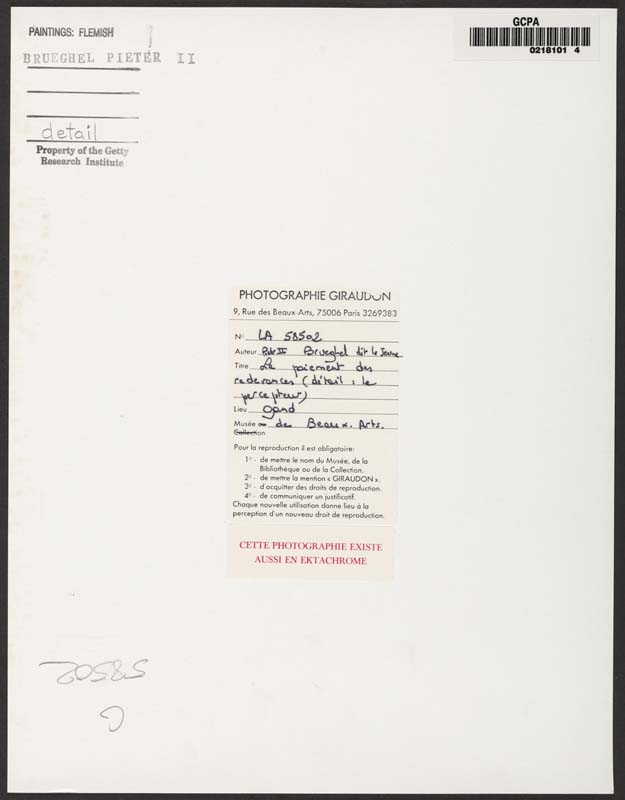 PAINTINGS: FLEMISH
BRUEGHEL PIETER II
detail
Property of the Getty
Research Institute
GCPA
0218101 4
PHOTOGRAPHIE GIRAUDON
9, Rue des Beaux-Arts, 75006 Paris 3269383
N° LA 58502
Auteur Pieter II Brueghel dit le Jeune
Titre Le paiement des
redevances (détail : le
percepteur)
Lieu gand
Musée ou des Beaux. Arts.
Collection
Pour la reproduction il est obligatoire:
1° - de mettre le nom du Musée, de la
Bibliothèque ou de la Collection.
2° - de mettre la mention « GIRAUDON ».
3° - d'acquitter des droits de reproduction.
4° - de communiquer un justificatif.
Chaque nouvelle utilisation donne lieu à la
perception d'un nouveau droit de reproduction.
CETTE PHOTOGRAPHIE EXISTE
AUSSI EN EKTACHROME
58502
G